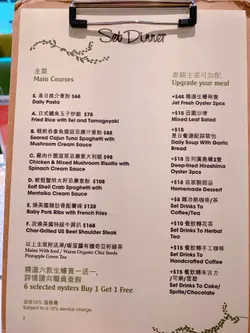 Set Dinner
主菜
Main Courses
S. 是日推介意粉 $68
Daily Pasta
A. 日式鰻魚玉子炒飯 $78
Fried Rice with Eel and Tamagoyaki
B.
Seared Cajun Tuna Spaghetti with
Mushroom Cream Sauce
C. $98
Chicken & Mixed Mushroom Risotto with
Spinach Cream Sauce
D. 軟殼蟹明太子忌廉意粉 $108
Soft Shell Crab Spaghetti with
Mentaiko Cream Sauce
E. $128
Baby Pork Ribs with French Fries
F. $168
Char-Grilled US Beef Shoulder Steak
Mains With Iced / Warm Organic Chia Seeds
Pineapple Green Tea
精選六款生蠔買一送一,
詳情請向職員查詢
6 selected oysters Buy 1 Get 1 Free
另收10% 服務費
Subject to 10% service charge.
惠顧主菜可加配
Upgrade your meal
+$48
Jet Fresh Oyster 2pcs
+$15 田園沙律
Mixed Leaf Salad
+$15
是日餐湯配蒜蓉包
Daily Soup With Garlic
Bread
+$18
Deep-fried Hiroshima
Oyster 3pcs
+$16 自家製甜品
Homemade Dessert
+$8
Set Drinks To
Coffee/Tea
+$10 餐飲轉花茶
Set Drinks To
Herbal Tea
+$15 餐飲轉手工咖啡
Set Drinks To
Handcraft Coffee
+$15
Set Drinks To Cake/
Sprite/Chocolate